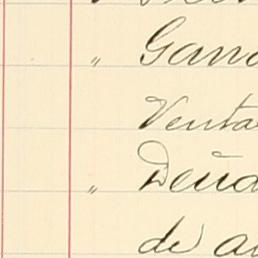 " Gana
Venta
" Deud
de a